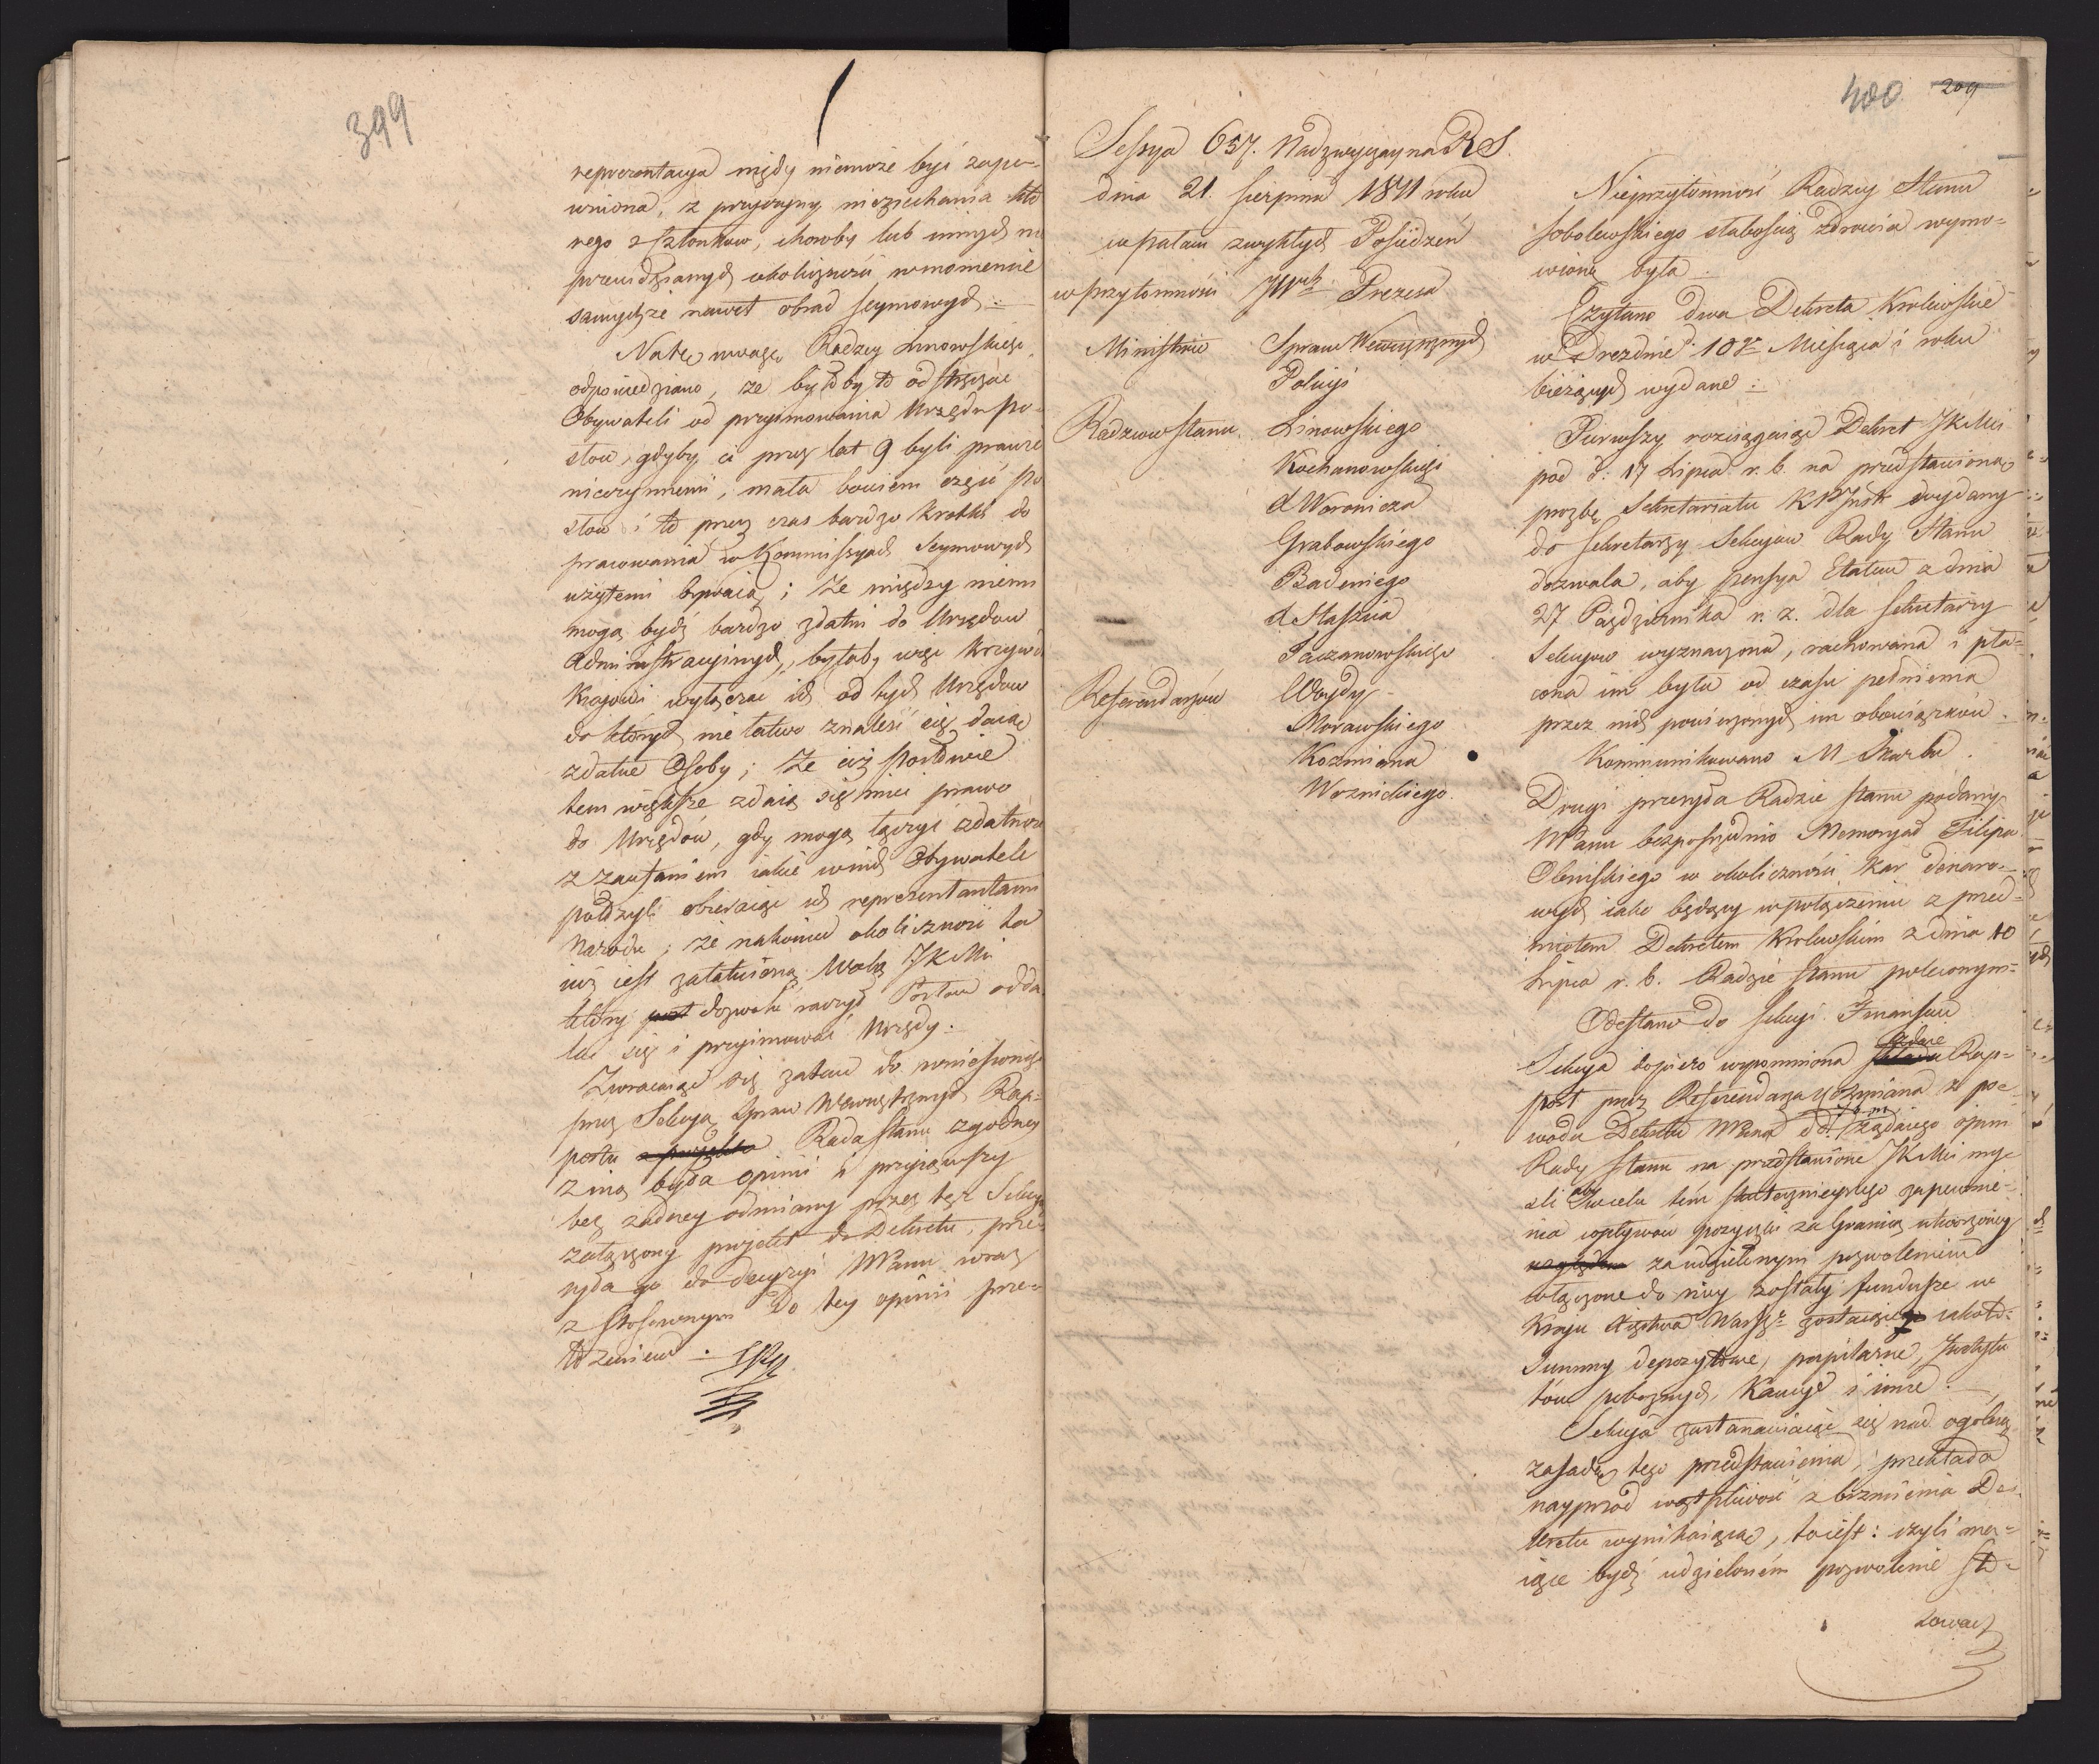 399
reprezentacya nigdy niemoże być zape-
wniona, z przyczyny niezjechania któ
rego z Członkow, choroby lub innych nie
przewidzianych okoliczności w momencie
samychże nawet obrad Seymowych .
Na tę uwagę Radzcy Linowskiego
odpowiedziano, że byłoby to odstręczać
Obywateli od przyimowania Urzędu Po-
słow, gdyby ci przez lat 9 byli prawie
nieczynnemi, mała bowiem część Po
słow i to przez czas bardzo krotki do
pracowania w Kommissyach Seymowych
użytemi bywaią; że między niemi
mogą bydź bardzo zdatni do Urzędow
Administracyinych, byłoby więc krzywdą
Kraiowi wyłączać ich od tych Urzędow
do których nie łatwo znaleść się daią
zdatne Osoby; że ciż Posłowie
tem większe zdaią się mieć prawo
do Urzędów, gdy mogą łączyć zdatność
z zaufaniem iakie w nich Obywatele
położyli obieraiąc ich reprezentantami
Narodu; że nakoniec okoliczność ta
iuż iest załatwioną Wolą JKMci
który dozwolić raczył Posłom odda
lać się i przyimować Urzędy.
Zwracaiąc się zatem do wniesionego
przez Sekcyą Spraw Wewnętrznych Rap-
portu Rada Stanu zgodney
z nią będąc opinii i przyiąwszy
bez żadney odmiany przez też Sekcyą
załączony projekt do Dekretu, prze-
syła go do decyzyi NPanu wraz
z stosownym do tey opinii prze-
łożeniem .
400 209
Sessya 657. Nadzwyczayna RS.
dnia 21. Sierpnia 1811 roku
w pałacu zwykłych Posiedzeń
w przytomności JW Prezesa
Ministrów Spraw Wewnętrznych
Policyi
Radzcow Stanu Linowskiego
Kochanowskiego
X Woronicza
Grabowskiego
Badeniego
X Staszica
Paczanowskiego
Referendarzów Woydy
Morawskiego
Kozmiana
Woznickiego.
Nieprzytomność Radzcy Stanu
Sobolewskiego słabością zdrowia wymo-
wioną była.
Czytano dwa Dekreta Krolewskie
w Dreznie 10 Miesiąca i roku
bieżących wydane:
Pierwszy rozciągaiąc Dekret JKMci
pod d: 17 Lipca r. b. na przedstawioną
prozbę Sekretariatu wydany
do Sekretarzy Sekcyow Rady Stanu
dozwala, aby pensya Etatem z dnia
27 Października r. z. dla Sekretarzy
Sekcyow wyznaczona, rachowana i pła-
cona im była od czasu pełnienia
przez nich powierzonych im obowiązków.
Kommunikowano M Skarbu.
Drugi przesyła Radzie Stanu podany
NPanu bezpośrednio Memoryał Filipa
w okoliczności Kar
wych iako będący w połączeniu z przed-
miotem Dekretem Krolewskim z dnia 10
Lipca r. b. Radzie Stanu poleconym.
Odesłano do Sekcyi Finansów
Sekcya dopiero wspomniona zdaie Rap-
port przez Referendarza Kozmiana z po-
wodu Dekretu NPana żądaiącego opinii
Rady Stanu na przedstawione JKMci my-
śli aby w celu tém skutecznieyszego zapewnie-
nia wpływow pożyczki za Granicą utworzoney
za udzielonym pozwoleniem
włączone do niey zostały fundusze w
Kraju Xięstwa Warsz. zostaiące iakoto:
Summy depozytowe, pupilarne, Instytu
tów pobożnych, Kaucye i inne.
Sekcya zastanawiaiąc się nad ogólną
zasadą tego przedstawienia, przekłada
nayprzod wątpliwość z brzmienia De-
kretu wynikaiącą, toiest: czyli ma-
iące bydź udzieloném pozwolenie sto-
sować